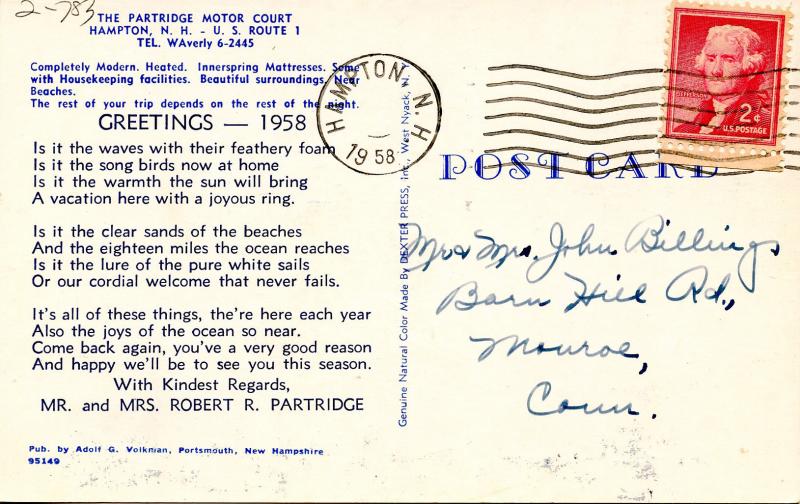 2-783
THE PARTRIDGE MOTOR COURT
HAMPTON, N. H. - U. S. ROUTE 1
TEL. WAverly 6-2445
Completely Modern. Heated. Innerspring Mattresses. Some
with Housekeeping facilities. Beautiful surroundings. Near
Beaches.
The rest of your trip depends on the rest of the night.
GREETINGS — 1958
Is it the waves with their feathery foam
Is it the song birds now at home
Is it the warmth the sun will bring
A vacation here with a joyous ring.
Is it the clear sands of the beaches
And the eighteen miles the ocean reaches
Is it the lure of the pure white sails
Or our cordial welcome that never fails.
It's all of these things, the're here each year
Also the joys of the ocean so near.
Come back again, you've a very good reason
And happy we'll be to see you this season.
With Kindest Regards,
MR. and MRS. ROBERT R. PARTRIDGE
Pub. by Adolf G. Volkman, Portsmouth, New Hampshire
95149
Genuine Natural Color Made By DEXTER PRESS, Inc., West Nyack, N. Y.
HAMPTON, N. H
1958
JEFFERSON
2¢
U.S. POSTAGE
POST CARD
Mr & Mrs. John Billings
Barn Hill Rd.,
Monroe,
Conn.